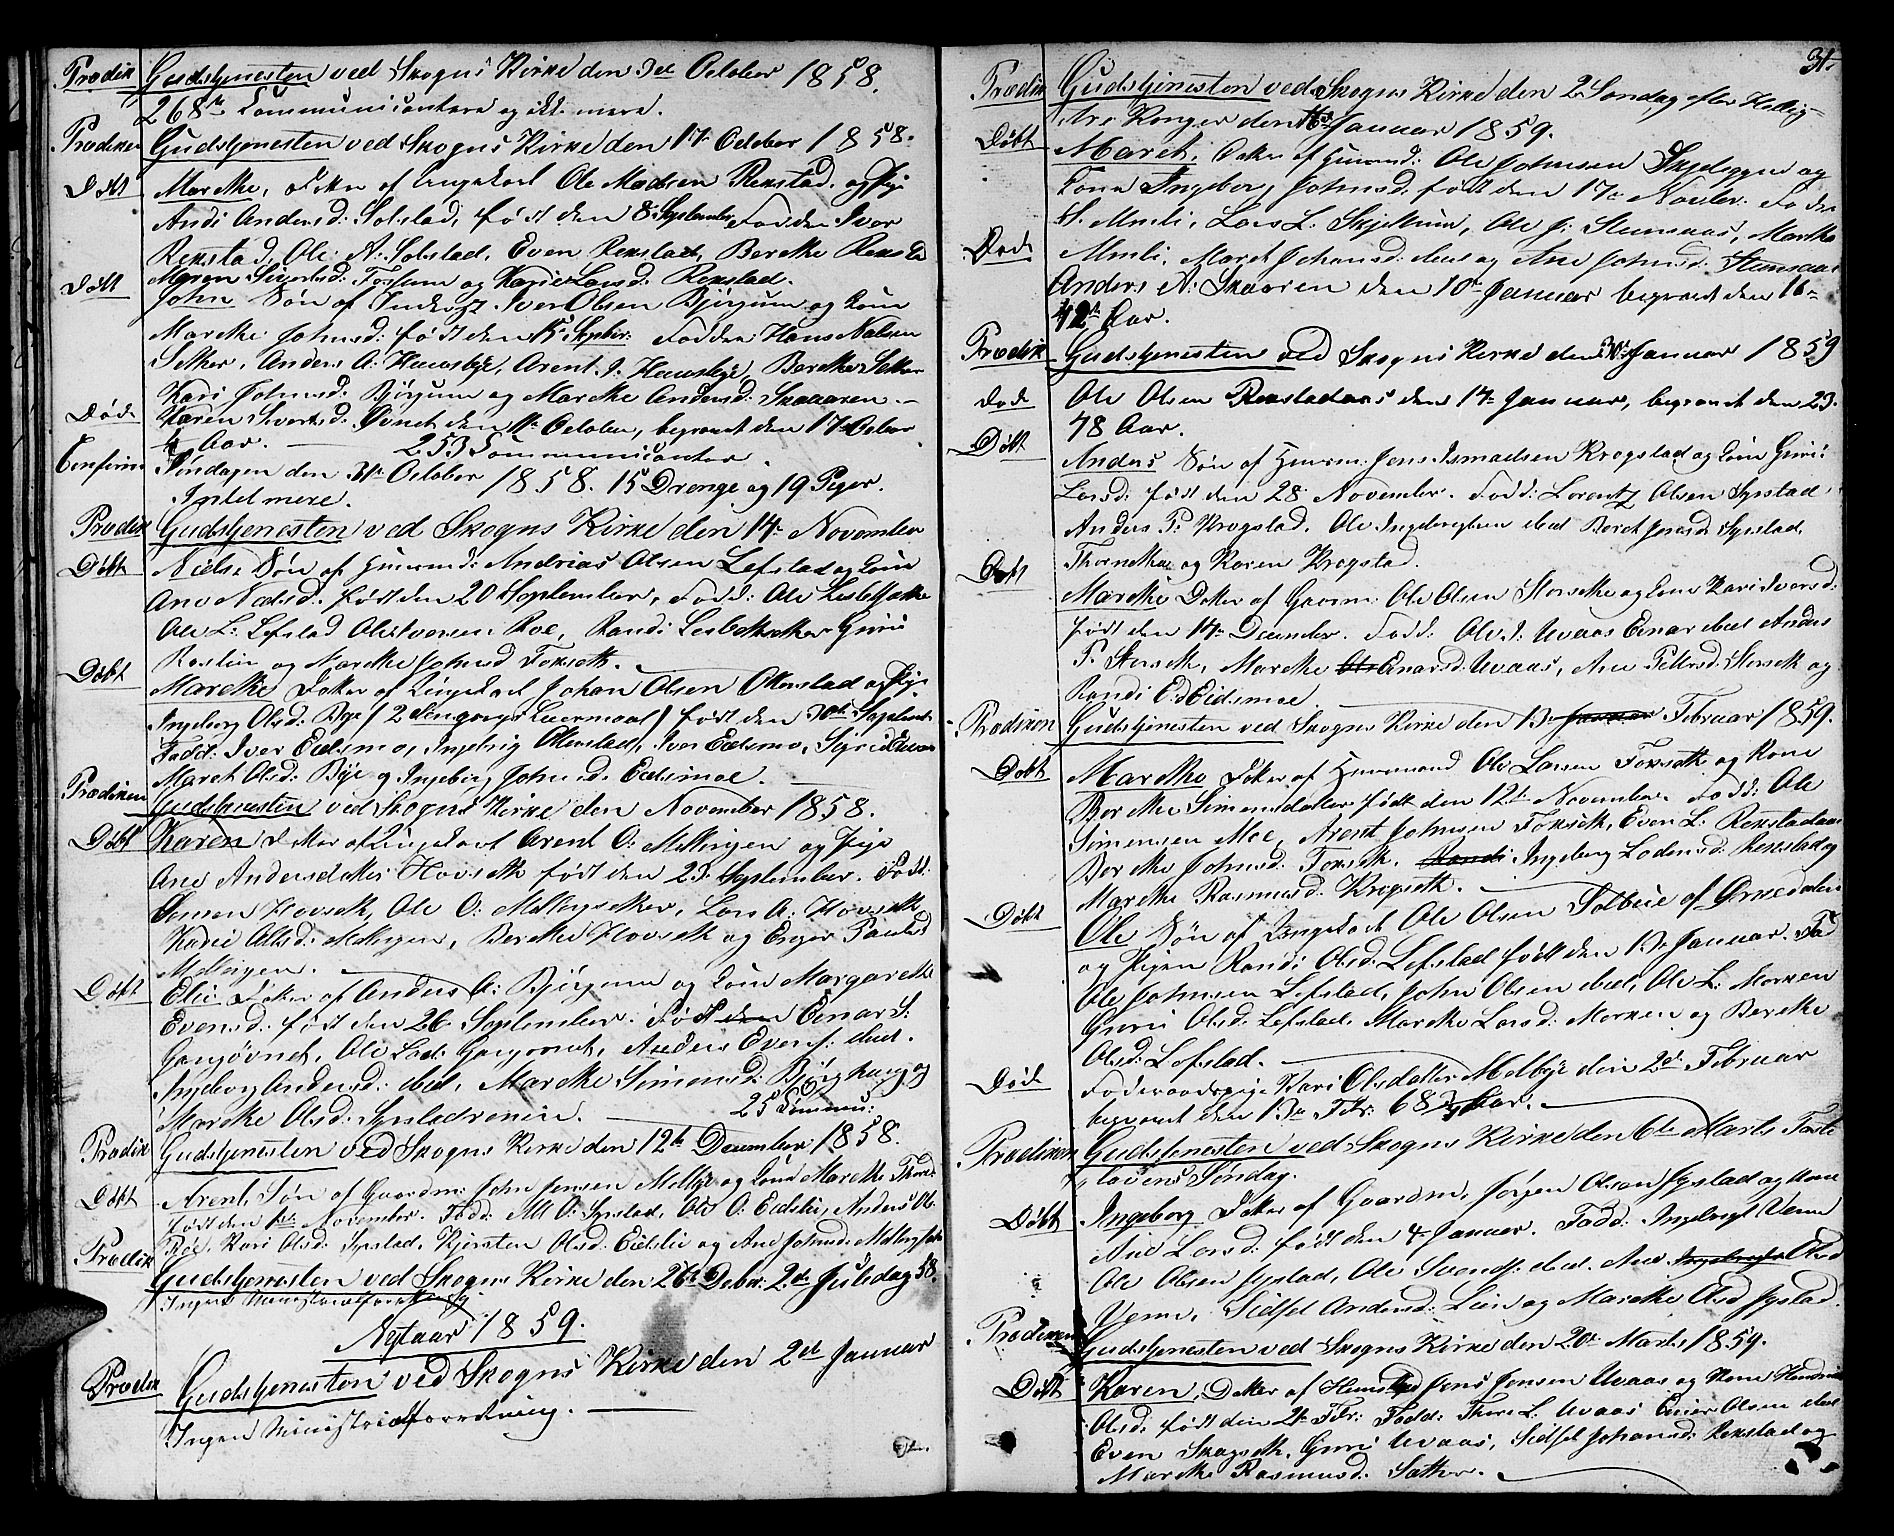 Prædik Gudstjenesten ved Skogns Kirke den 3de October 1858.
268 Communicantere og ikke mere.
Prædiken Gudstjenesten ved Skogns Kirke den 17. October 1858.
Døbt Marethe, Dotter af Ungekarl Ole Madsen Rekstad og Pige
Andi Andersd: Solstad, født den 8. September Fadder Iver
Rekstad, Ole A. Solstad, Even Rekstad, Berethe Rekstad
Maren Sivertsd: Fossum og Karie Larsd: Rekstad.
Døbt John Søn af Inderst Iver Olsen Bjørgum og Kone
Marethe Johnsd: født den 15. Septbr: Fadder Hans Nielsen
Sether, Anders A: Haugbye, Arent I: Haugbye, Berethe Sether
Kari Johnsd: Bjørgum og Marethe Andersd: Skaaren.
Død Karen Sivertsd: Øvnet den 11. October, begravet den 17 October
4 Aar. 253 Communicanter.
Confirm Søndagen den 31te October 1858. 15 Drenge og 19 Piger.
Intet mere.
Prædik Gudstjenesten ved Skogns Kirke den 14. November
Døbt Niels Søn af Huusmd: Andrias Olsen Lefstad og Kone
Ane Nielsd: født den 20 September, Fadd: Ole
Ole L: Lefstad Roe, Randi Guru
og Marethe Johnsd Forseth.
Døbt Marethe Dotter af Ungekarl Johan Olsen Okerstad og Pige
Ingeborg Olsd: Bye (2den gangs Leiermaal) født den 30te September
Fadd: Iver Eidsmo, Ingebrig Okerstad, Iver Eidsmo, Sigrid
Maret Olsd: Bye og Ingeborg Johnsd: Eidsmoe.
Prædiken Gudstjenesten ved Skogns Kirke den November 1858.
Døbt Karen Dotter af Ungekarl Arent O: Mellingen og Pige
Ane Andersdatter Hovseth født den 23 September. Fadd:
Simon Hovseth, Ole O: Mellingsether, Lars A: Hovseth
Karie Olsd: Mellingen, Berethe Hovseth og Enger Paulsd
Mellingen.
Døbt Elie Dotter af Anders A: Bjørgum og Kone Margarethe
Evensd: født den 26 September. Fadd Einar S:
Gangøvnet, Ole Lad: Gangøvnet, Anders Evens: ibid.
Ingeborg Andersd: ibid, Marethe Simensd: Bjørghaug og
Marethe Olsd: Syrstadrønnin. 25 Commu:
Prædik Gudstjenesten ved Skogns Kirke den 12te December 1858.
Døbt Arent Søn af Gaardm: John Jensen Melbye og Kone Marethe
født den 1ste November. Fadd: O: Syrstad, Ole O: Eidslie, Anders Ol:
Røe, Kari Olsd: Syrstad, Kjersten Olsd: Eidslie og Ane Johnsd:
Prædik Gudstjenesten ved Skogns Kirke den 26te Debr: 2den Juledag 58.
Ingen Ministrialforretning
Nytaar 1859.
Prædik Gudstjenesten ved Skogns Kirke den 2den Januar
Ingen Ministrialforretning.
31.
Prædik Gudstjenesten ved Skogns Kirke den 2 Søndag efter Hellig-
Tre Konger den 16 Januar 1859.
Døbt Maret, Dotter af Huusmd: Ole Johnsen Skjeleggen og
Kone Ingeborg Johnsd: født den 17. Novbr. Fadder
H. Mmli, Lars L: Skjellium, Ole J: Stensaas, Marethe
Mmli, Maret Johnsd: ibid og Ane Johnsd: Stensaas
Død Anders A: Skaaren den 10. Januar begravet den 16
72 Aar.
Prædik Gudstjenesten ved Skogns Kirke den 30 Januar 1859
Død Ole Olsen Rekstadaas den 14. Januar, begravet den 23.
78 Aar.
Døbt Anders Søn af Huusm: Jens Ismaelsen Krogstad og Kone Guru
Larsd: født den 28 November. Fadd: Lorentz Olsen Syrstad,
Anders P: Krogstad. Ole Ingebrightsen ibid Beret Jensd: Syrstad,
Thorethea og Karen Krogstad.
Døbt Marethe Dotter af Gaardm: Ole Olsen Storseth og Kone Kari Iversd:
født den 14. December. Fadd: Ole I: Uvaas Einar ibid Anders
P. Storseth, Marethe Einarsd: Uvaas, Ane Pettersd: Storseth og
Randi Ed Eidsmoe.
Prædiken Gudstjenesten ved Skogns Kirke den 13. Januar Februar 1859.
Døbt Marethe Dotter af Huusmand Ole Larsen Forseth og Kone
Berethe Simensdatter født den 12. November. Fadd: Ole
Simensen Moe, Arent Johnsen Forseth, Even L: Rekstadaas
Berethe Johnsd: Forseth, Randi Ingeborg Ladensd: Rekstad og
Marethe Rasmusd: Krogseth.
Døbt Ole Søn af Ungekarl Ole Olsen Solberg af Ørkedalen
og Pigen Randi Olsd: Lefstad født den 13. Januar. Fad
Ole Johnsen Lefstad, John Olsen ibid, Ole L: Morken
Guru Olsd: Lefstad, Marethe Larsd: Morken og Berethe
Olsd: Lefstad.
Død Foderaadspige Kari Olsdatter Melbye den 2den Februar
begravet den 13de Febr: 68 Aar.
Prædiken Gudstjenesten ved Skogns Kirke den 6te Marts Faste
lavens Søndag.
Døbt Ingeborg Dotter af Gaardm, Jørgen Olsen Syrstad og Kone
Ane Larsd: født den 4. Januar. Fadd: Ingebrigt Venn
Ole Olsen Syrstad, Ole Svends: ibid. Ane Olsd
Venn, Sidsel Andersd: Lien og Marethe Olsd Syrstad.
Prædiken Gudstjenesten ved Skogns Kirke den 20. Marts 1859.
Døbt Karen, Dotter af Huusmand Jens Jensen Uvaas og Kone
Olsd: født den 2. Febr: Fadd: Thore L: Uvaas Einar Olsen ibid
Even Skogseth, Guru Uvaas, Sidsel Johansd: Rekstad og
Marethe Rasmusd: Sather.